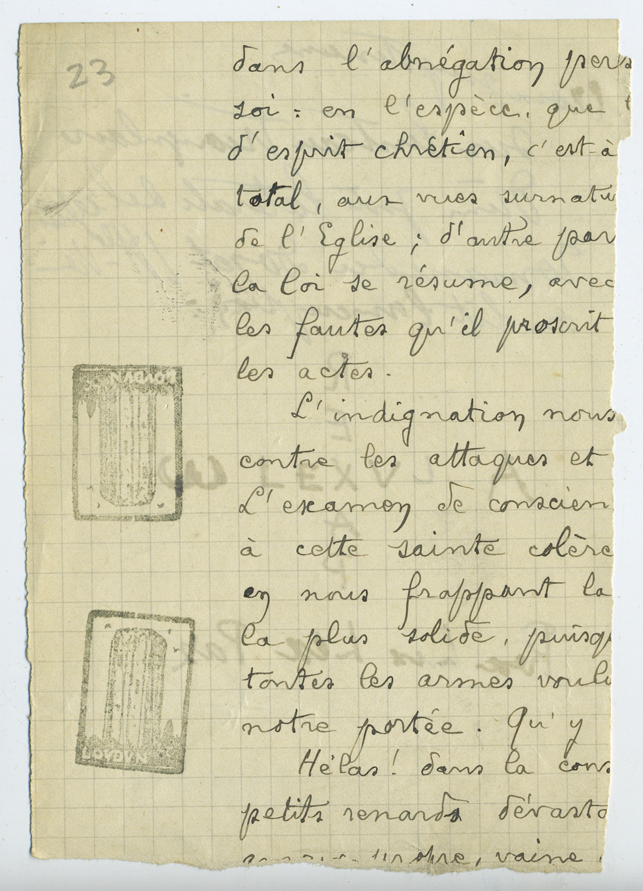 23
dans l'abnégation pers
soi : en l'espèce, que l
d'esprit chrétien, c'est-à
total, aux vues surnatu
de l'Eglise ; d'autre par
la loi se résume, avec
les fautes qu'il proscrit
les actes.
L'indignation nous
contre les attaques et
L'examen de conscien
à cette sainte colère
en nous frappant la
la plus solide, puisqu
toutes les armes voul
notre portée. Qu'y
Hélas! dans la cons
petits renards dévasta
vaine
LOUDUN
LOUDUN